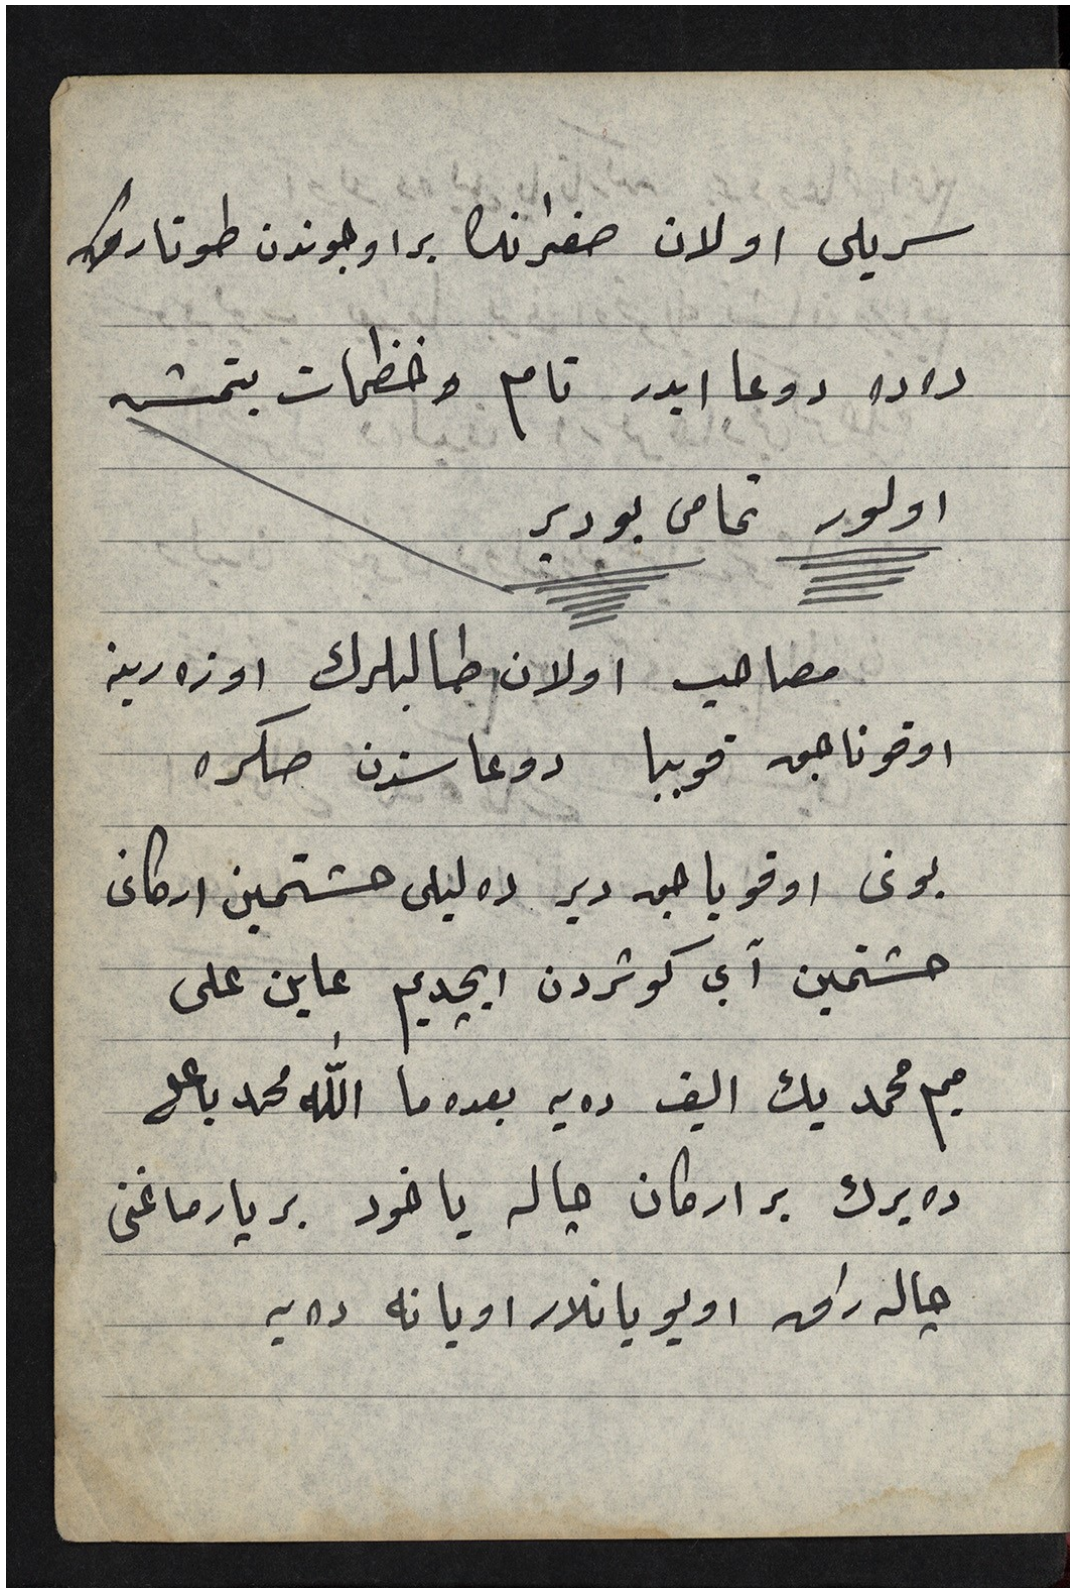 سريلى اولان صفرانك بر اوجوندن طوتارق
ده ده دوعا ايدر تامام وخظمات بتمش
اولور تمامى بودير
مصاحب اولان طالبلرك اوزه رينه
اوقوناجق قوببا دوعاسندن صكره
بونى اوقوياجق دير ده ليلى حشتمين اركانى
حشتمين آبي كوثردن ايچديم عاين على
ميم محمد يك اليف ده يه بعده ما الله محمد يا على
ده يرك بر اركان چاله ياخود بر پارماغنى
چاله راق اويويانلار اويانه ده يه